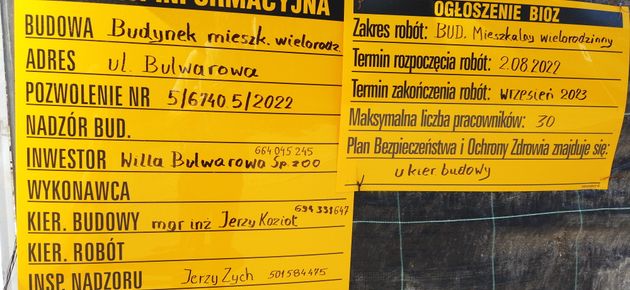 INFORMACYJNA
BUDOWA Budynek mieszk. wielorodz.
ADRES ul. Bulwarowa
POZWOLENIE NR 5/6740 5/2022
NADZÓR BUD.
664 045 245
INWESTOR Willa Bulwarowa Sp. z o o
WYKONAWCA
694 331 647
KIER. BUDOWY mgr inż Jerzy Kozioł
KIER. ROBÓT
INSP. NADZORU Jerzy Zych 501584475
OGŁOSZENIE BIOZ
Zakres robót: BUD. Mieszkalny wielorodzinny
Termin rozpoczęcia robót: 2.08.2022
Termin zakończenia robót: wrzesień 2023
Maksymalna liczba pracowników: 30
Plan Bezpieczeństwa i Ochrony Zdrowia znajduje się:
u kier. budowy